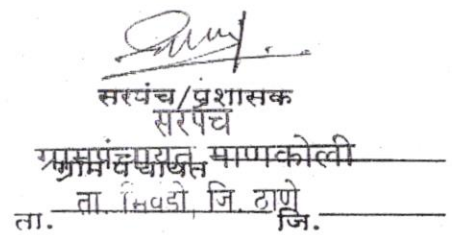 सरपंच/प्रशासक
सरपंच
ग्रामपंचायत माणकोली
ग्राम पंचायत
ता. भिवंडी, जि. ठाणे
ता. जि.